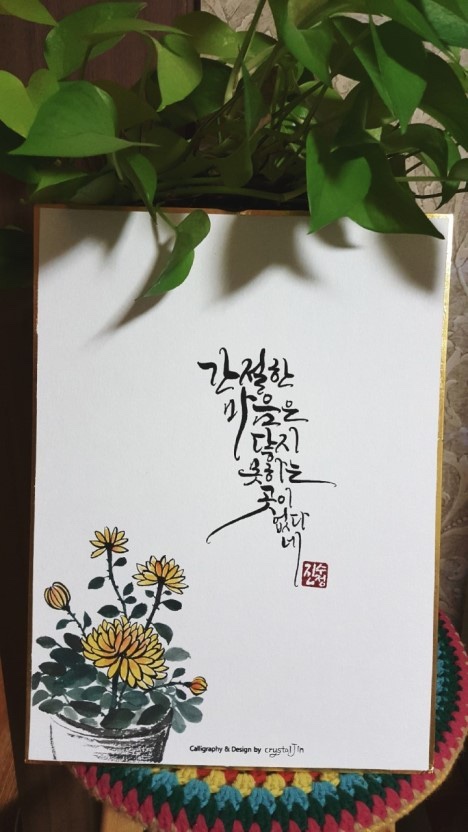 간절한
마음은
닿지
못하는
곳이
없다
네
진수정
Calligraphy & Design by crystal Jin